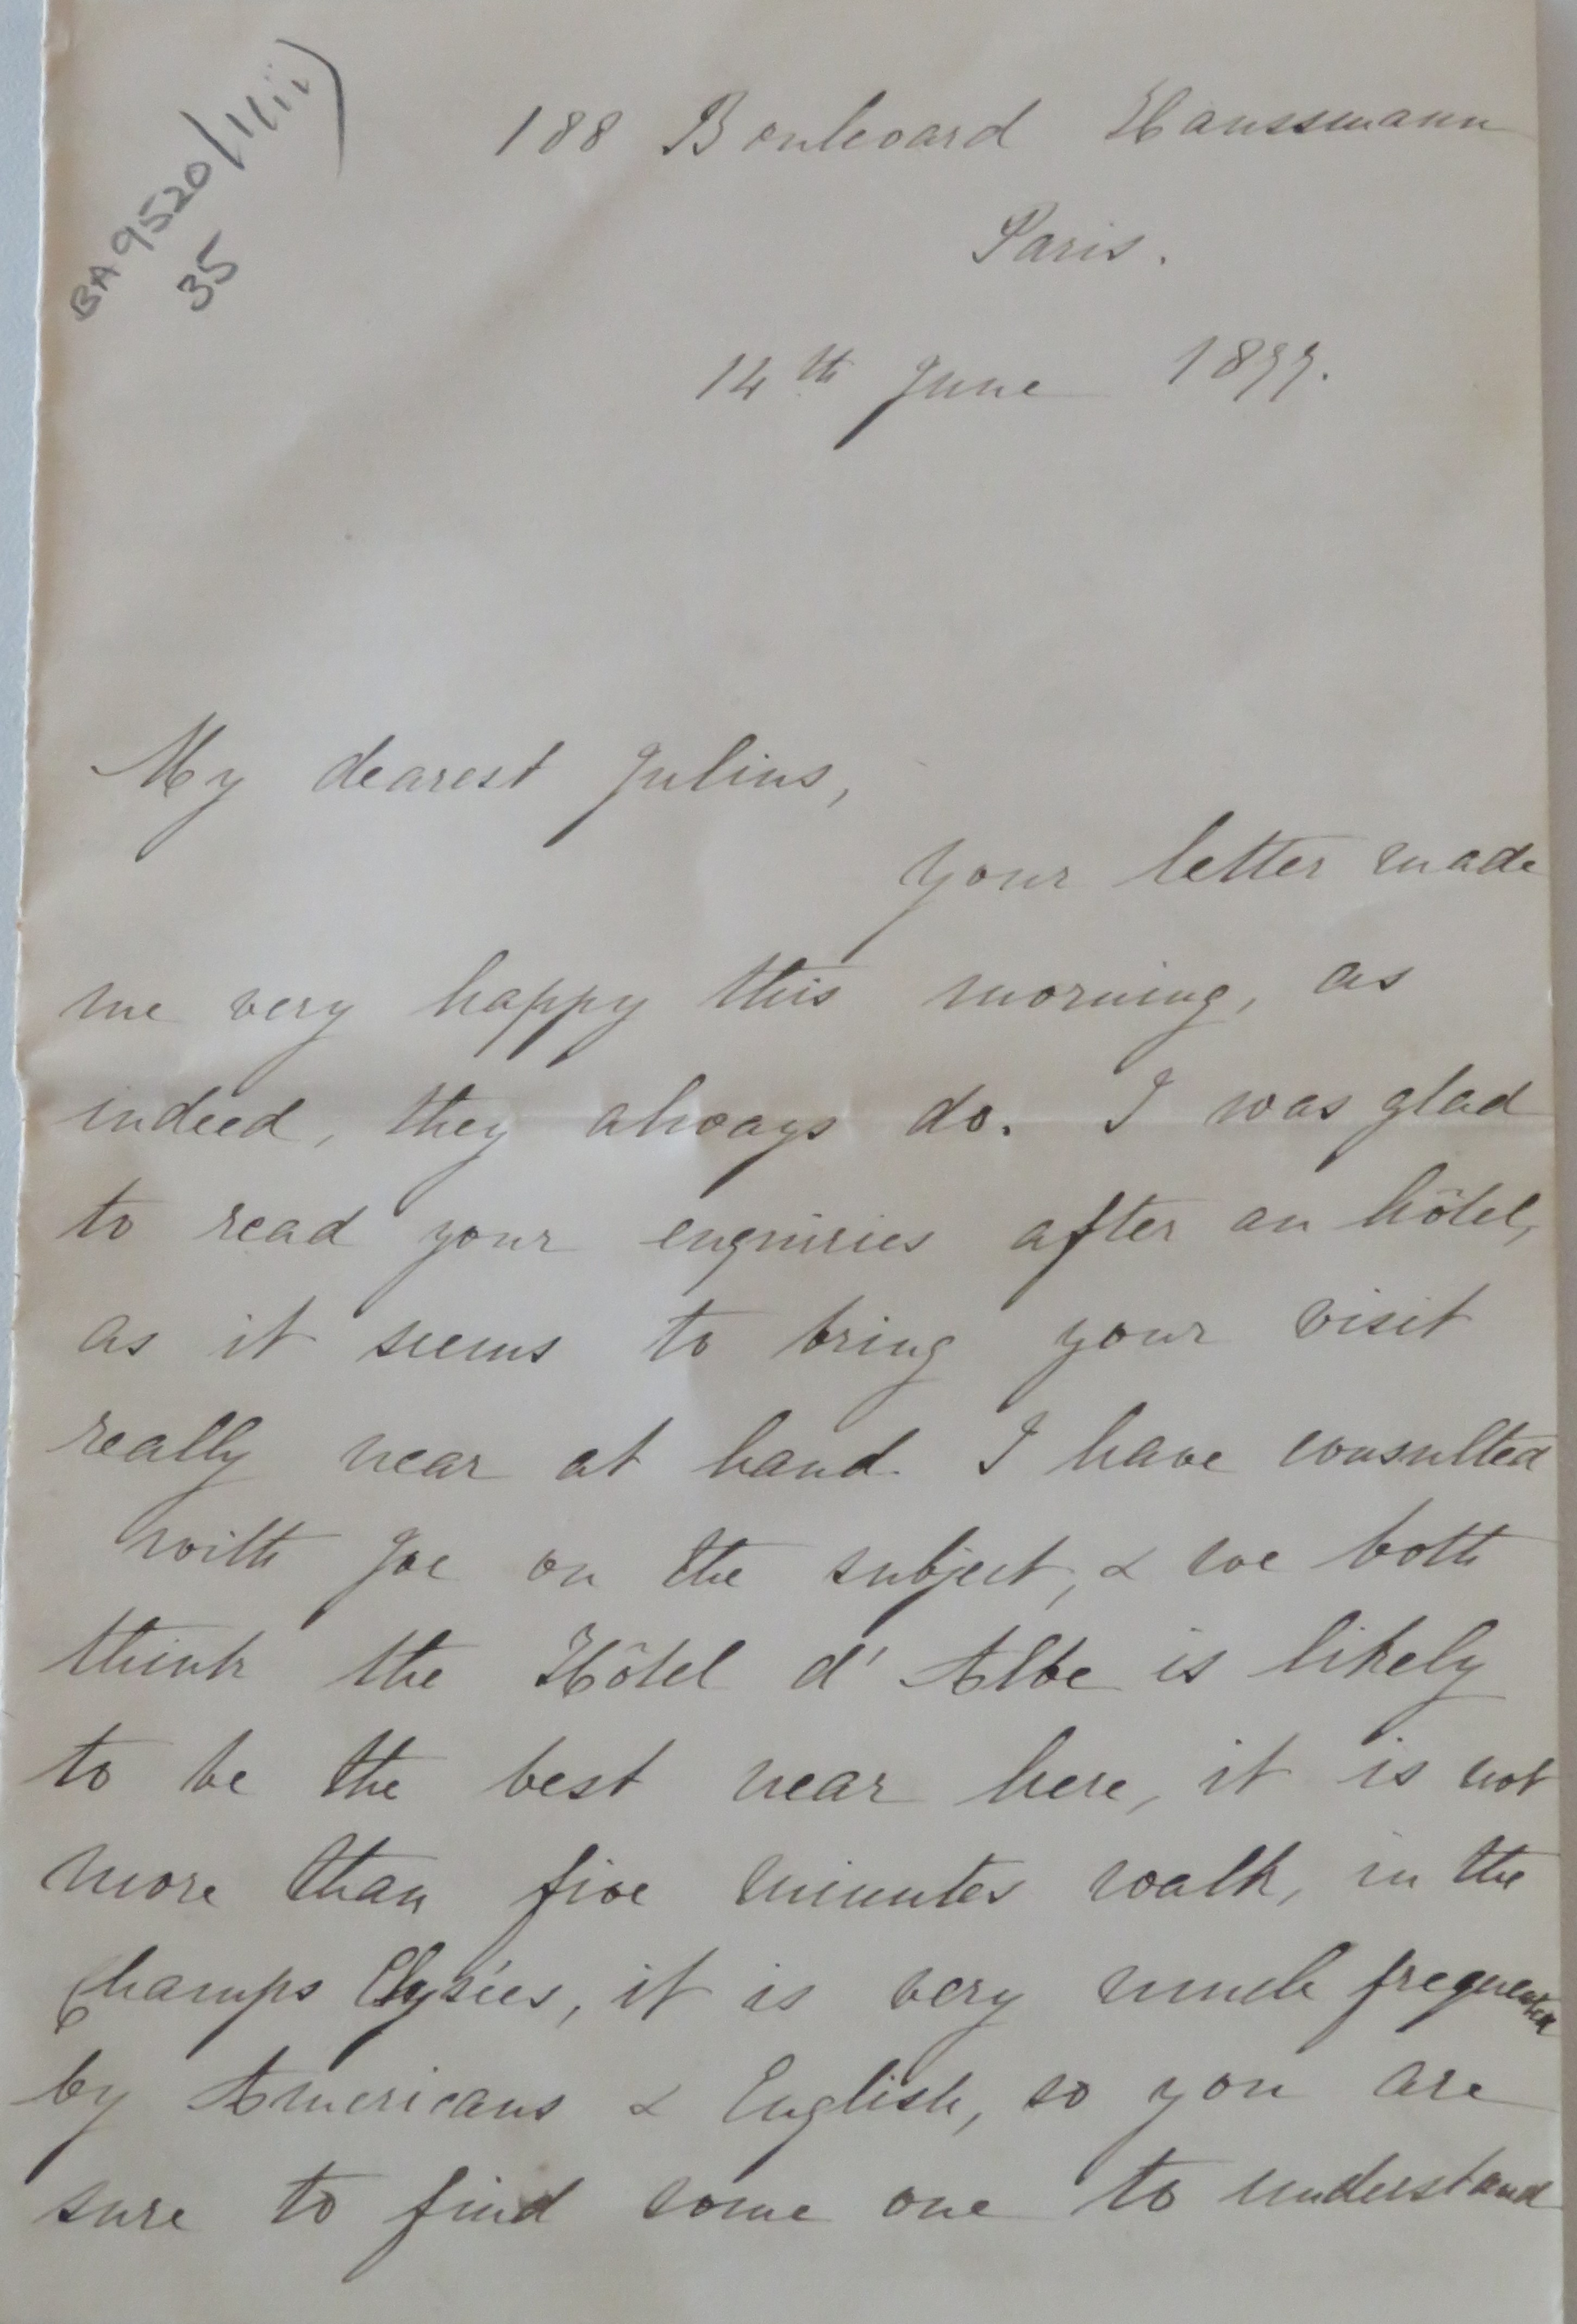 BA9520/1(ii)
35
188 Boulevard Haussmann
Paris.
14th June 1877.
My dearest Julius,
your letter made
me very happy this morning, as
indeed, they always do. I was glad
to read your enquiries after an hôtel,
as it seems to bring your visit
really near at hand. I have consulted
with Joe on the subject, & we both
think the Hôtel d'Albe is likely
to be the best near here, it is not
more than five minutes walk, in the
Champs Elysées, it is very much frequented
by Americans & English, so you are
sure to find some one to understand